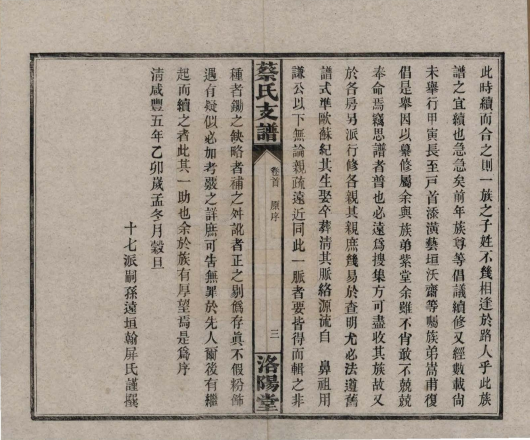 此時續而合之則一族之子姓不幾相逢於路人乎此族
譜之宜續也急急矣前年族尊等倡議續修又經數載尙
未舉行甲寅長至戸首添潢藝垣沃齋等囑族弟嵩甫復
倡是舉因以纂修屬余與族弟紫堂余雖不肖敢不兢兢
奉命焉竊思譜者普也必遠爲搜集方可盡收其族故又
於各房另派行修各親其親庶幾易於查明尤必法遵舊
譜式準歐蘇紀其生娶卒葬淸其脈絡源流自 鼻祖用
謙公以下無論親疏遠近同此一脈者要皆得而輯之非
蔡氏支譜
卷首 原序
三
洛陽堂
種者鋤之缺略者補之舛訛者正之剔僞存眞不假粉飾
遇有疑似必加考覈之詳庶可告無罪於先人爾後有繼
起而續之者此其一助也余於族有厚望焉是爲序
淸咸豐五年乙卯歲孟冬月穀旦
十七派嗣孫遠垣翰屏氏謹撰